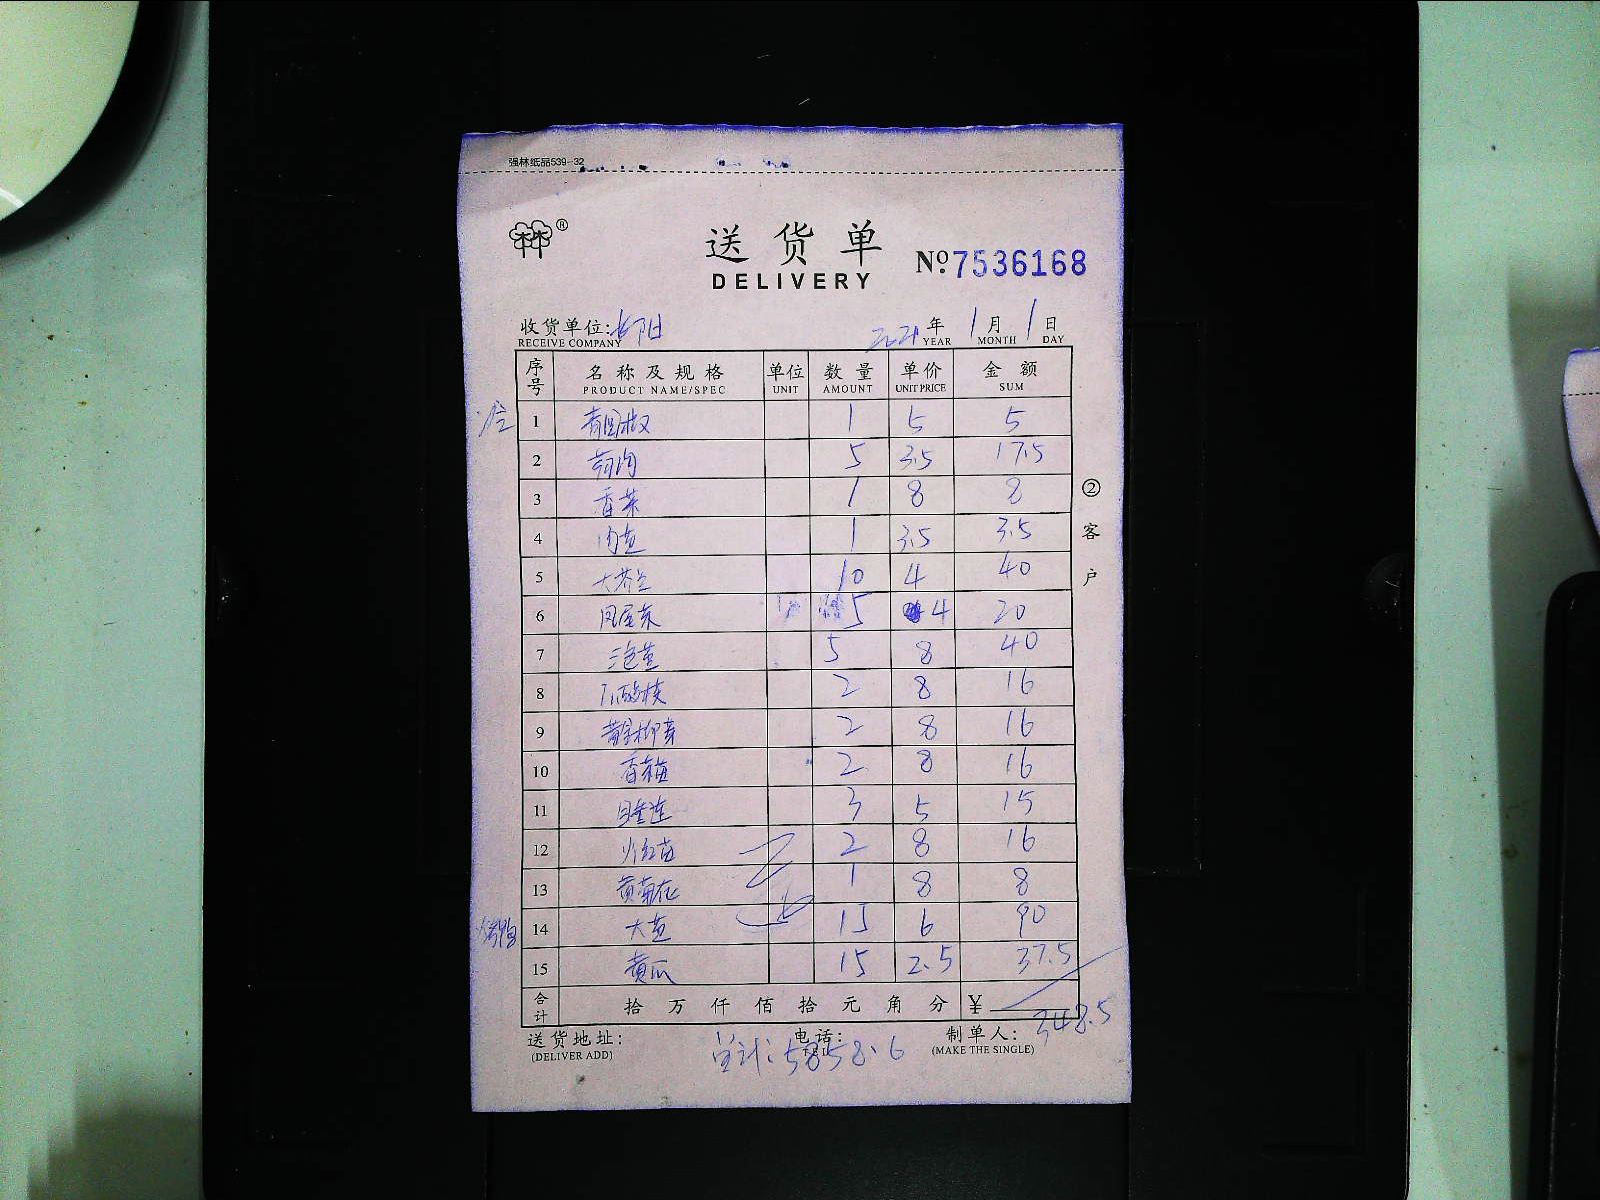 强林纸品539-32
送货单
DELIVERY
№:7536168
收货单位:
RECEIVE COMPANY
2021年 1月 1日
YEAR MONTH DAY
序号 名称及规格 单位 数量 单价 金额
PRODUCT NAME/SPEC UNIT AMOUNT UNIT PRICE SUM
1 青圆椒 1 5 5
2 5 3.5 17.5
3 香菜 1 8 8
4 1 3.5 3.5
5 大芥兰 10 4 40
6 凤尾菜 5 4 20
7 5 8 40
8 2 8 16
9 2 8 16
10 2 8 16
11 3 5 15
12 2 8 16
13 黄菊花 1 8 8
14 大葱 15 6 90
15 黄瓜 15 2.5 37.5
合计 拾万仟佰拾元角分 ¥ 348.5
② 客户
送货地址: 电话: 制单人:
(DELIVER ADD) TEL (MAKE THE SINGLE)
总计:5858.6